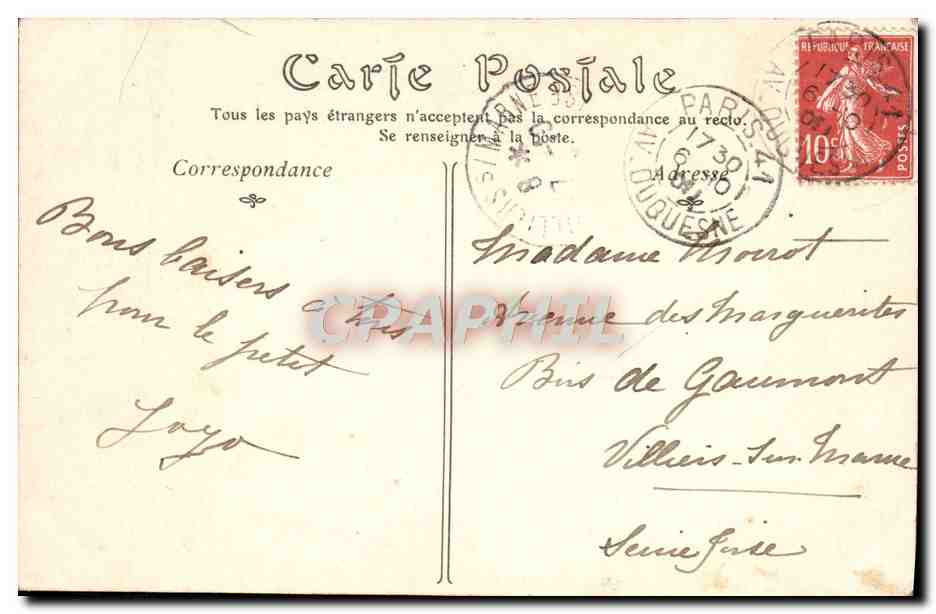 Carte Postale
Tous les pays étrangers n'acceptent pas la correspondance au recto.
Se renseigner à la poste.
Correspondance
Adresse
Bons baisers a tous
pour le petit
Madame Moirot
Avenue des Marguerites
Bois de Gaumont
Villiers-Sur-Marne
Seine &
PARIS 41
17 30
6 10
AV. DUQUESNE
REPUBLIQUE FRANÇAISE
10c
POSTES
CPAPHIL